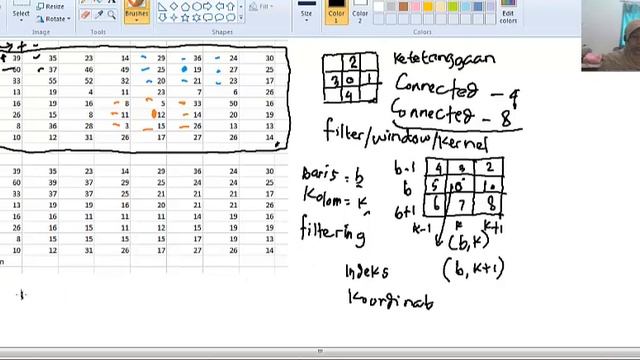 Select
Resize
Rotate
Brushes
Tools
Shapes
Outline
Fill
Size
Color 1
Color 2
Colors
Edit colors
39 35 23 14 29 36 24 30
60 37 46 49 25 19 27 25
33 55 52 32 20 21 23 17
13 19 4 11 23 7 6 26
16 19 16 8 5 33 50 16
26 15 8 11 12 14 20 19
8 36 28 3 15 26 13 13
10 12 31 21 17 27 26 14
39 35 23 14 29 36 24 30
60 39 37 29 25 24 24 25
33 37 37 25 21 21 21 17
13 19 19 16 20 21 21 26
16 16 11 11 11 14 19 16
26 16 15 11 12 15 19 19
8 15 15 15 15 17 19 13
10 12 31 21 17 27 26 14
2
3 0 1
4
Ketetanggaan
Connected - 4
Connected - 8
filter/window/kernel
baris = b
kolom = k
filtering
b-1 4 3 2
b 5 0 1
b+1 6 7 8
k-1 k k+1
(b,k)
Indeks (b,k+1)
Koordinat